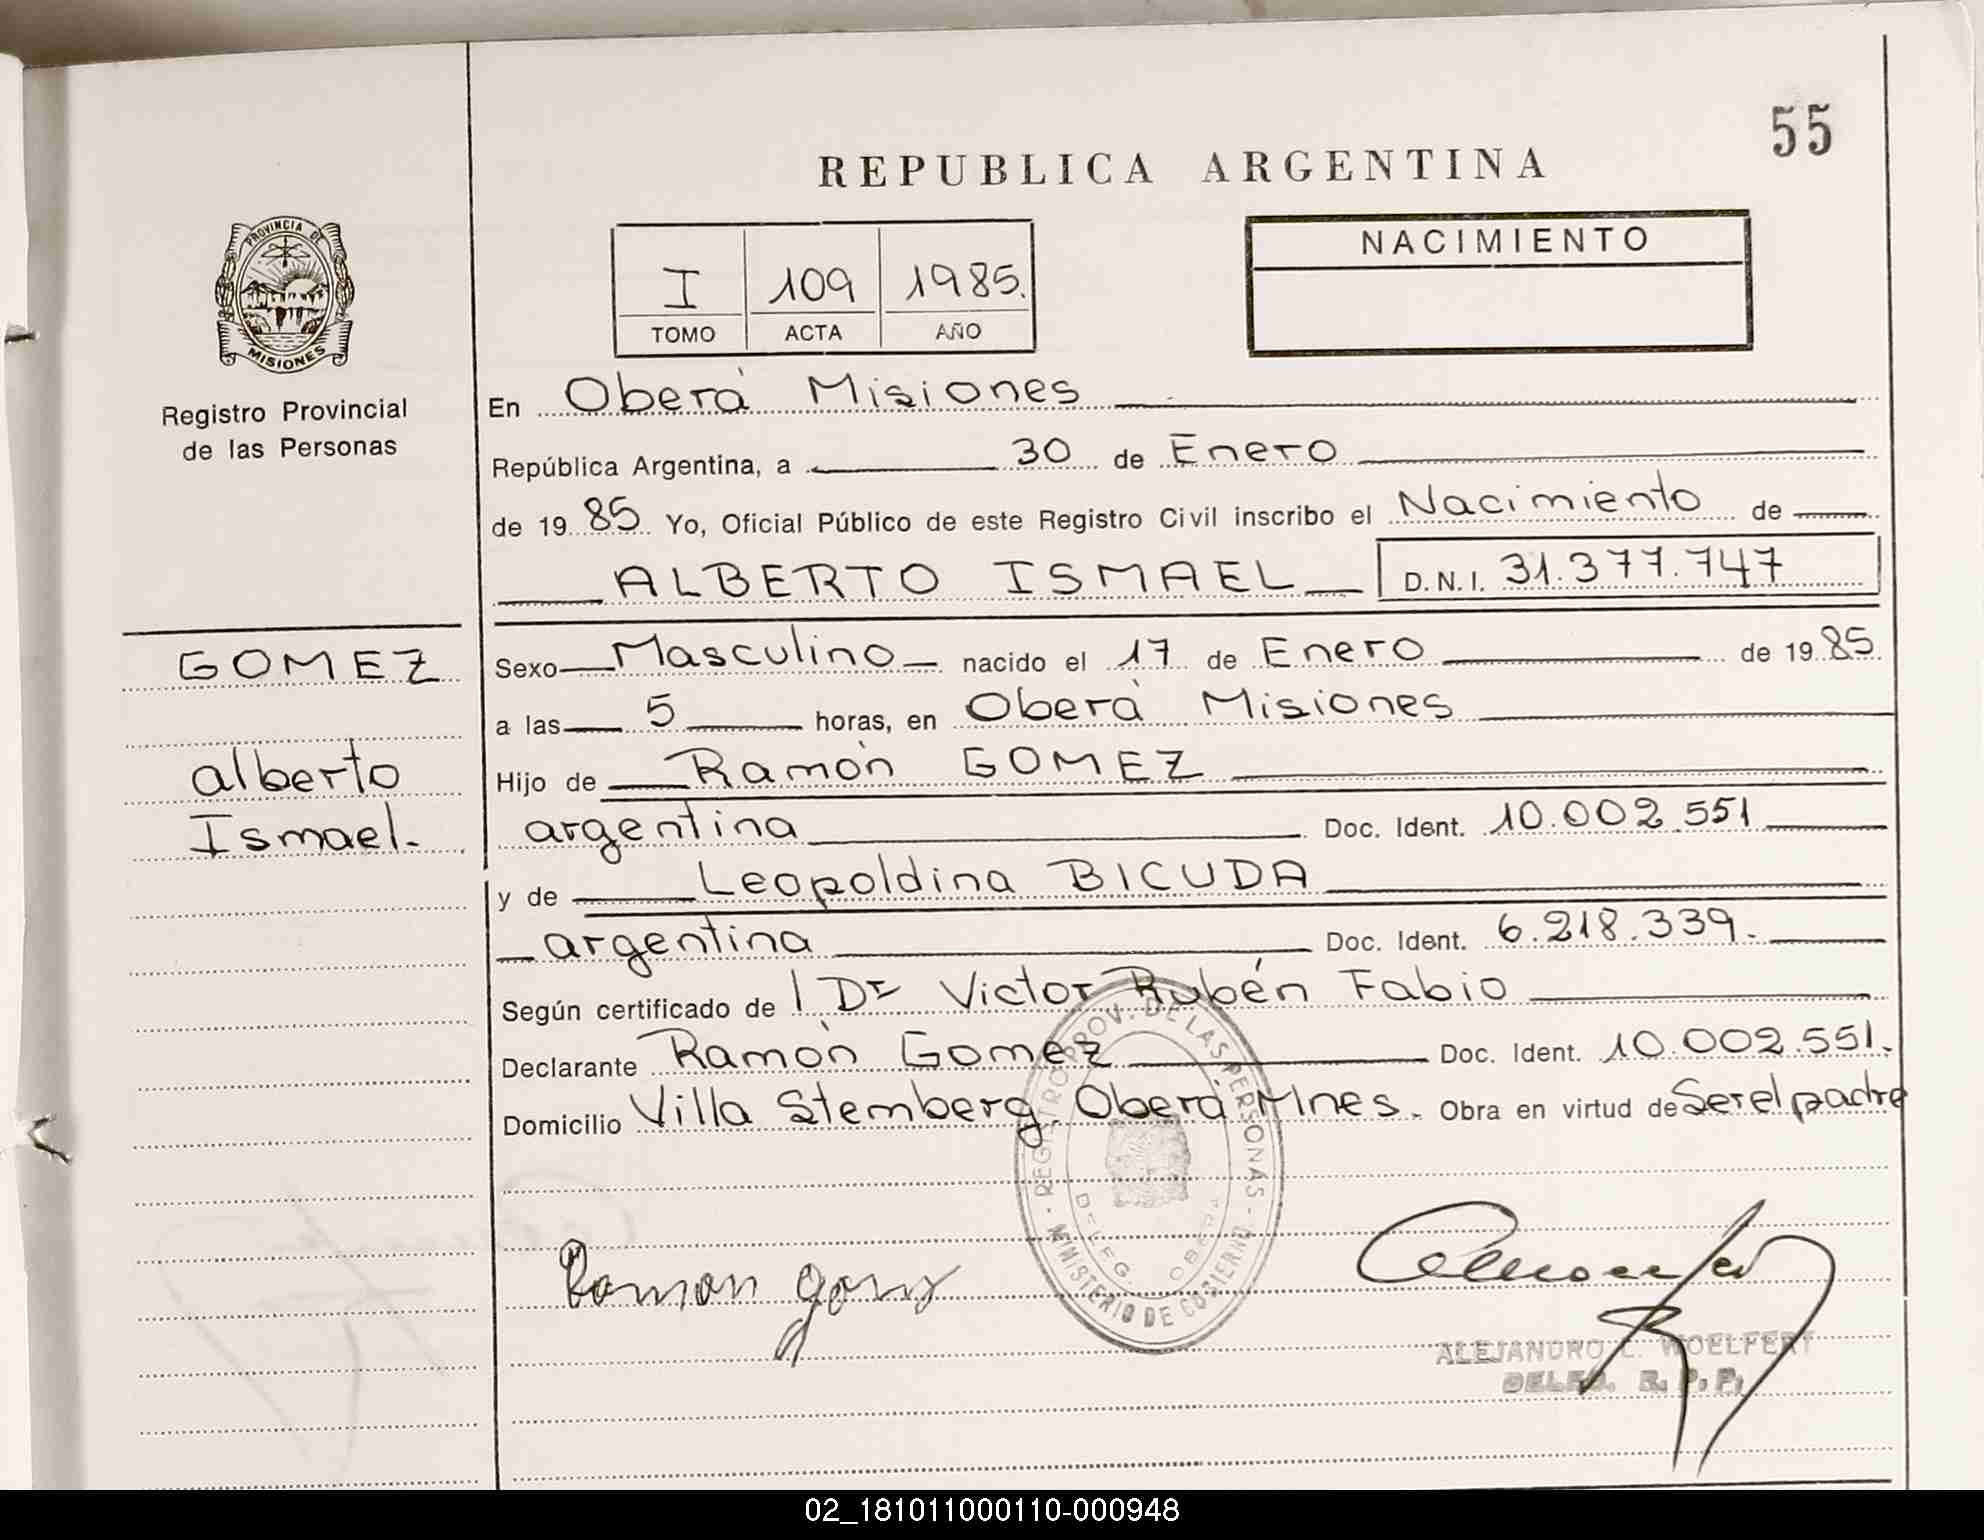 55
REPUBLICA ARGENTINA
PROVINCIA DE
MISIONES
Registro Provincial
de las Personas
I 109 1985.
TOMO ACTA AÑO
NACIMIENTO
En Oberá Misiones
República Argentina, a 30 de Enero
de 19 85 Yo, Oficial Público de este Registro Civil inscribo el Nacimiento de
ALBERTO ISMAEL D.N.I. 31.377.747
GOMEZ
alberto
Ismael.
Sexo Masculino nacido el 17 de Enero de 19 85
a las 5 horas, en Oberá Misiones
Hijo de Ramón GOMEZ
argentina Doc. Ident. 10.002.551
y de Leopoldina BICUDA
argentina Doc. Ident. 6.218.339.
Según certificado de l Dr Victor Rubén Fabio
Declarante Ramón Gomez Doc. Ident. 10.002.551.
Domicilio Villa Stemberg Oberá Mnes. Obra en virtud de Ser el padre
REGISTRO PROV. DE LAS PERSONAS
DELEG. OBERA
MINISTERIO DE GOBIERNO
Ramon
ALEJANDRO L. WOELFERT
DELEG. R. P. P.
02_181011000110-000948